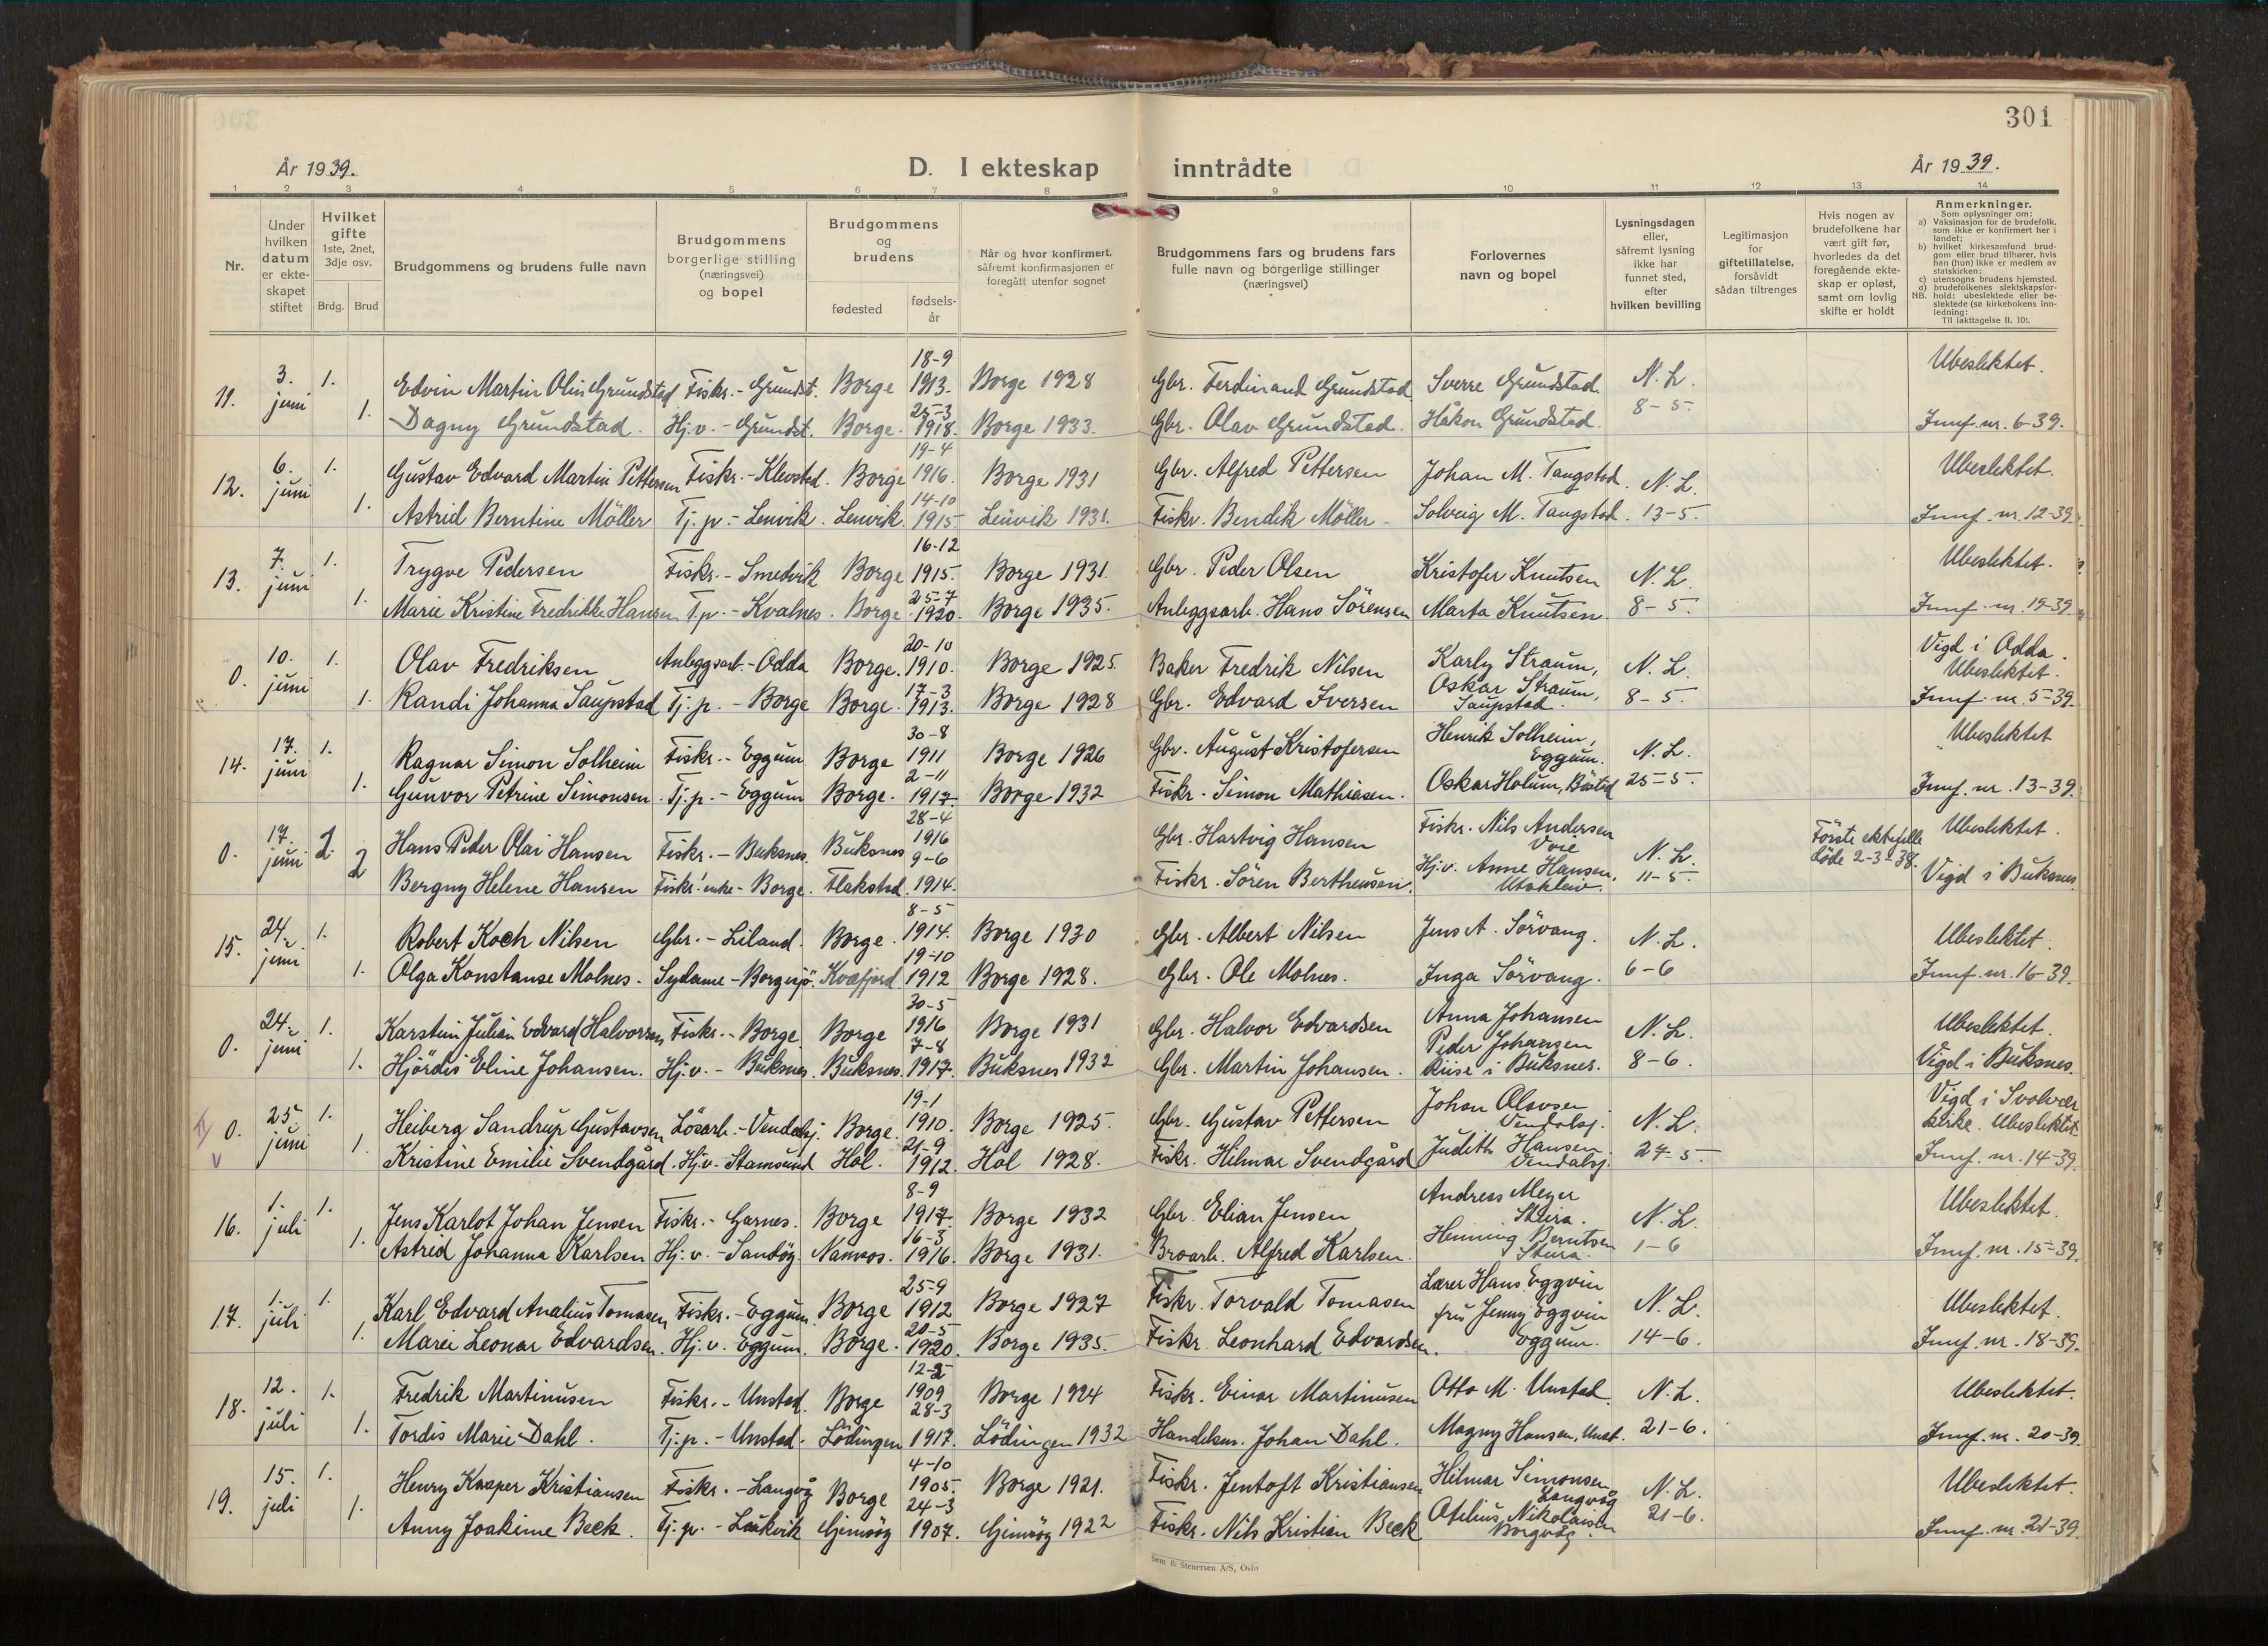 301
År 1939.
D. I ekteskap inntrådte
År 1939.
1 2 3 4 5 6 7 8 9 10 11 12 13 14
Nr.
Under hvilken datum er ekteskapet stiftet
Hvilket gifte 1ste, 2net, 3dje osv.
Brdg. Brud
Brudgommens og brudens fulle navn
Brudgommens borgerlige stilling (næringsvei) og bopel
Brudgommens og brudens
fødested
fødselsår
Når og hvor konfirmert, såfremt konfirmasjonen er foregått utenfor sognet
Brudgommens fars og brudens fars fulle navn og borgerlige stillinger (næringsvei)
Forlovernes navn og bopel
Lysningsdagen eller, såfremt lysning ikke har funnet sted, efter hvilken bevilling
Legitimasjon for giftetillatelse, forsåvidt sådan tiltrenges
Hvis nogen av brudefolkene har vært gift før, hvorledes da det foregående ekteskap er opløst, samt om lovlig skifte er holdt
Anmerkninger.
Som oplysninger om:
a) Vaksinasjon for de brudefolk, som ikke er konfirmert her i landet;
b) hvilket kirkesamfund brudgom eller brud tilhører, hvis han (hun) ikke er medlem av statskirken;
c) utensogns brudens hjemsted.
d) brudefolkenes slektskapsforhold: ubeslektede eller beslektede (se kirkebokens innledning:
NB. Til iakttagelse II. 10).
11. 3. juni 1. Edvin Martin Olin Grundstad Fiskr. - Grundst. Borge 18-9 1913. Borge 1928 Gbr. Ferdinand Grundstad Sverre Grundstad. N. L. 8-5. Ubeslektet.
1. Dagny Grundstad. Hj.v. - Grundst. Borge. 25-3 1918. Borge 1933. Gbr. Olav Grundstad. Håkon Grundstad. Jmf. nr. 6-39.
12. 6. juni 1. Gustav Edvard Martin Pettersen Fiskr. - Klevstad. Borge 19-4 1916. Borge 1931 Gbr. Alfred Pettersen Johan M. Tangstad. N. L. 13-5. Ubeslektet.
1. Astrid Berntine Möller Tj.p. - Lenvik. Lenvik. 14-10 1915. Lenvik 1931. Fiskr. Bendik Möller. Solveig M. Tangstad. Jmf. nr. 12-39.
13. 7. juni 1. Trygve Pedersen Fiskr. - Smedvik Borge 16-12 1915. Borge 1931. Gbr. Peder Olsen Kristofer Knutsen N. L. 8-5. Ubeslektet.
1. Marie Kristine Fredrikke Hansen T.p. - Kvalnes. Borge 25-7 1920. Borge 1935. Anleggsarb. Hans Sörensen Marta Knutsen. Jmf. nr. 19-39.
0. 10. juni 1. Olav Fredriksen Anleggsarb. - Odda Borge. 20-10 1910. Borge 1925. Baker Fredrik Nilsen Karly Straum, Oskar Straum, Saupstad. N. L. 8-5. Vigd i Odda. Ubeslektet.
1. Randi Johanna Saupstad Tj.p. - Borge Borge. 17-3 1913. Borge 1928 Gbr. Edvard Iversen Jmf. nr. 5-39.
14. 17. juni 1. Ragnar Simon Solheim Fiskr. - Eggum Borge 30-8 1911 Borge 1926 Gbr. August Kristofersen Henrik Solheim, Eggum. N. L. 25-5. Ubeslektet
1. Gunvor Petrine Simonsen. Tj.p. - Eggum Borge. 2-11 1917. Borge 1932 Fiskr. Simon Mathiasen. Oskar Holum, Böstad Jmf. nr. 13-39.
0. 17. juni 2. Hans Peder Olai Hansen Fiskr. - Buksnes. Buksnes 28-4 1916 Gbr. Hartvig Hansen Fiskr. Nils Andersen N. L. 11-5. Første ektefelle døde 2-3-38. Ubeslektet.
2 Bergny Helene Hansen Fiskr. enke - Borge. Flakstad. 9-6 1914. Fiskr. Sören Bertheusen. Hj.v. Anne Hansen, Utakleiv. Vigd i Buksnes.
15. 24. juni 1. Robert Koch Nilsen Gbr. - Liland. Borge. 8-5 1914. Borge 1930 Gbr. Albert Nilsen Jens A. Sörvang. N. L. 6-6 Ubeslektet.
1. Olga Konstanse Molnes. Sydame - Borgesjö. Kvæfjord 19-10 1912 Borge 1928. Gbr. Ole Molnes. Inga Sörvang. Jmf. nr. 16-39.
0. 24. juni 1. Karstein Julian Edvard Halvorsen Fiskr. - Borge Borge 30-5 1916 Borge 1931 Gbr. Halvor Edvardsen Anna Johansen Peder Johansen Riise i Buksnes. N. L. 8-6. Ubeslektet.
1. Hjördis Eline Johansen. Hj.v. - Buksnes. Buksnes. 7-8 1917. Buksnes 1932 Gbr. Martin Johansen. Vigd i Buksnes.
0. 25. juni 1. Heiberg Sandrup Gustavsen Lösarb. - Vendalsj. Borge. 19-1 1910. Borge 1925. Gbr. Gustav Pettersen Johan Olavsen Vendalsj. N. L. 24-5. Vigd i Svolvær kirke. Ubeslektet.
1. Kristine Emilie Svendgård. Hj.v. Stamsund Hol. 21-9 1912. Hol 1928. Fiskr. Hilmar Svendgård Judith Hansen Vendalsj. Jmf. nr. 14-39.
16. 1. juli 1. Jens Karlot Johan Jensen Fiskr. - Garnes. Borge 8-9 1917. Borge 1932 Gbr. Elian Jensen Andreas Meyer Steira. N. L. 1-6 Ubeslektet.
1. Astrid Johanna Karlsen Hj.v. - Sandöy. Namsos. 16-3 1916. Borge 1931. Broarb. Alfred Karlsen. Henning Berntsen Steira. Jmf. nr. 15-39.
17. 1. juli 1. Karl Edvard Analius Tomasen, Fiskr. - Eggum. Borge 25-9 1912 Borge 1927 Fiskr. Torvald Tomasen Lærer Hans Eggvin fru Jenny Eggvin Eggum. N. L. 14-6. Ubeslektet.
1. Marei Leonar Edvardsen. Hj.v. Eggum. Borge. 20-5 1920. Borge 1935. Fiskr. Leonhard Edvardsen. Jmf. nr. 18-39.
18. 12. juli 1. Fredrik Martinusen Fiskr. - Unstad. Borge 12-2 1909 Borge 1924 Fiskr. Einar Martinusen Otto M. Unstad. N. L. 21-6. Ubeslektet.
1. Tordis Marie Dahl. Tj.p. - Unstad. Lödingen 28-3 1917. Lödingen 1932 Handelsm. Johan Dahl. Magny Hansen, Unst. Jmf. nr. 20-39.
19. 15. juli 1. Henry Kasper Kristiansen Fiskr. - Langvåg Borge 4-10 1905. Borge 1921. Fiskr. Jentoft Kristiansen Hilmar Simonsen Langvåg N. L. 21-6. Ubeslektet.
1. Anny Joakime Beck. Tj.p. - Laukvik Gimsöy 24-3 1907. Gimsöy 1922 Fiskr. Nils Kristian Beck Atelius Nikolaisen Borgvåg. Jmf. nr. 21-39.
Sem & Stenersen A/S, Oslo